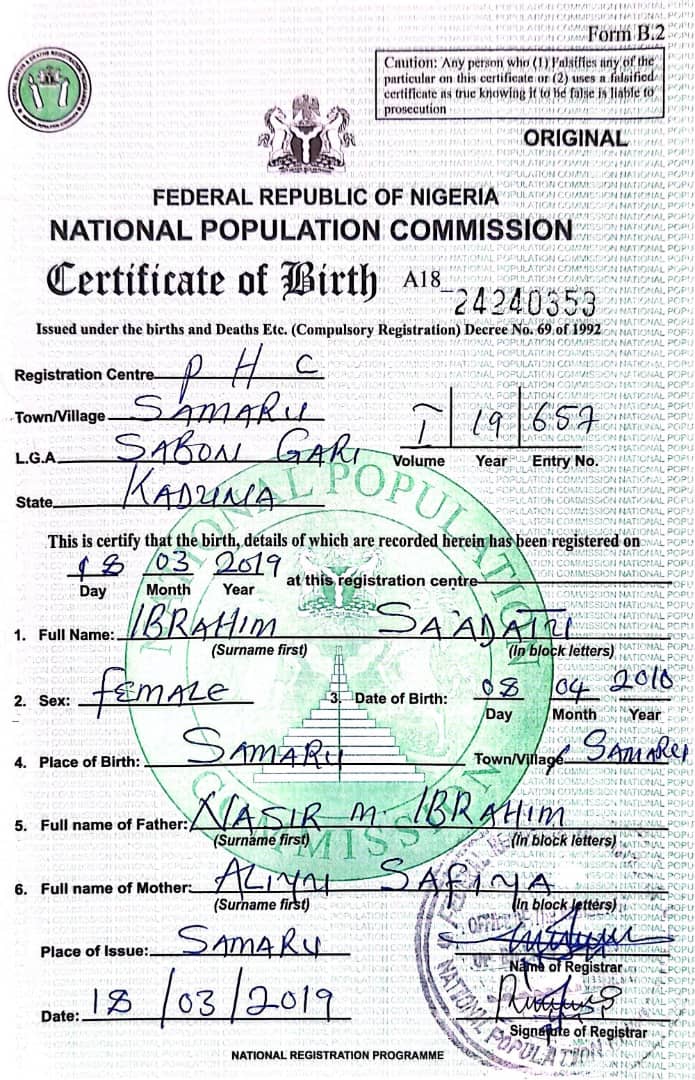 Form B.2
Caution: Any person who (1) Falsifies any of the
particular on this certificate or (2) uses a falsified
certificate as true knowing it to be false is liable to
prosecution
ORIGINAL
FEDERAL REPUBLIC OF NIGERIA
NATIONAL POPULATION COMMISSION
Certificate of Birth A18 24240353
Issued under the births and Deaths Etc. (Compulsory Registration) Decree No. 69 of 1992
Registration Centre P H C
Town/Village SAMARU
I 19 657
L.G.A SABON GARI
Volume Year Entry No.
State KADUNA
This is certify that the birth, details of which are recorded herein has been registered on
18 03 2019 at this registration centre
Day Month Year
1. Full Name: IBRAHIM SA'ADATU
(Surname first) (In block letters)
2. Sex: FEMALE 3. Date of Birth: 08 04 2010
Day Month Year
4. Place of Birth: SAMARU Town/Village SAMARU
5. Full name of Father: NASIR M. IBRAHIM
(Surname first) (In block letters)
6. Full name of Mother: ALIYU SAFIYA
(Surname first) (In block letters)
Place of Issue: SAMARU
Name of Registrar
Date: 18/03/2019
Signature of Registrar
NATIONAL REGISTRATION PROGRAMME
NATIONAL POPULATION COMMISSION